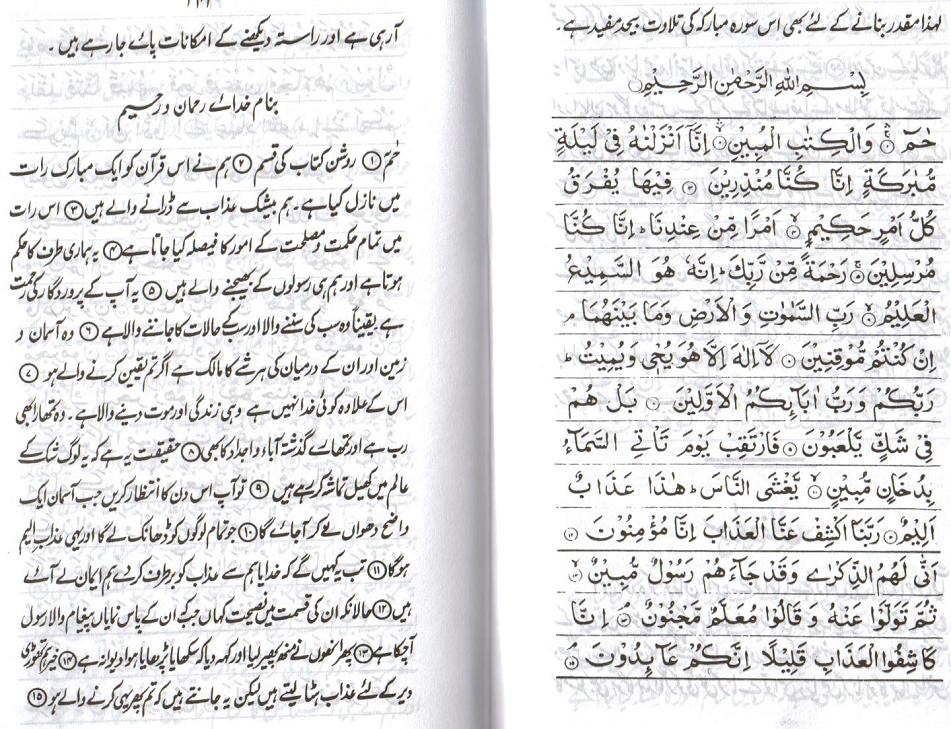 لہذا مقدر بنانے کے لئے بھی اس سورہ مبارکہ کی تلاوت بیحد مفید ہے۔
بِسْمِ اللّٰهِ الرَّحْمٰنِ الرَّحِيْمِ
حٰمٓ ۱ وَالْكِتٰبِ الْمُبِيْنِ ۲ اِنَّآ اَنْزَلْنٰهُ فِيْ لَيْلَةٍ
مُّبٰرَكَةٍ اِنَّا كُنَّا مُنْذِرِيْنَ ۳ فِيْهَا يُفْرَقُ
كُلُّ اَمْرٍ حَكِيْمٍ ۴ اَمْرًا مِّنْ عِنْدِنَا ط اِنَّا كُنَّا
مُرْسِلِيْنَ ۵ رَحْمَةً مِّنْ رَّبِّكَ ط اِنَّهٗ هُوَ السَّمِيْعُ
الْعَلِيْمُ ۶ رَبِّ السَّمٰوٰتِ وَ الْاَرْضِ وَمَا بَيْنَهُمَا م
اِنْ كُنْتُمْ مُّوْقِنِيْنَ ۷ لَآ اِلٰهَ اِلَّا هُوَ يُحْيٖ وَيُمِيْتُ ط
رَبُّكُمْ وَرَبُّ اٰبَآئِكُمُ الْاَوَّلِيْنَ ۸ بَلْ هُمْ
فِيْ شَكٍّ يَّلْعَبُوْنَ ۹ فَارْتَقِبْ يَوْمَ تَاْتِي السَّمَآءُ
بِدُخَانٍ مُّبِيْنٍ ۱۰ يَّغْشَى النَّاسَ ط هٰذَا عَذَابٌ
اَلِيْمٌ ۱۱ رَبَّنَا اكْشِفْ عَنَّا الْعَذَابَ اِنَّا مُؤْمِنُوْنَ ۱۲
اَنّٰى لَهُمُ الذِّكْرٰى وَقَدْ جَآءَهُمْ رَسُوْلٌ مُّبِيْنٌ ۱۳
ثُمَّ تَوَلَّوْا عَنْهُ وَ قَالُوْا مُعَلَّمٌ مَّجْنُوْنٌ ۱۴ اِنَّا
كَاشِفُوا الْعَذَابِ قَلِيْلًا اِنَّكُمْ عَآئِدُوْنَ ۱۵
آرہی ہے اور راستہ دیکھنے کے امکانات پائے جارہے ہیں ۔
بنام خدائے رحمان و رحیم
حٰمٓ ۱ روشن کتاب کی قسم ۲ ہم نے اس قرآن کو ایک مبارک رات
میں نازل کیا ہے۔ ہم بیشک عذاب سے ڈرانے والے ہیں ۳ اس رات
میں تمام حکمت و مصلحت کے امور کا فیصلہ کیا جاتا ہے ۴ یہ ہماری طرف کا حکم
ہوتا ہے اور ہم ہی رسولوں کے بھیجنے والے ہیں ۵ یہ آپ کے پروردگار کی رحمت
ہے یقیناً وہ سب کی سننے والا اور سب کے حالات کا جاننے والا ہے ۶ وہ آسمان و
زمین اور ان کے درمیان کی ہر شے کا مالک ہے اگر تم یقین کرنے والے ہو ۷
اس کے علاوہ کوئی خدا نہیں ہے وہی زندگی اور موت دینے والا ہے ۔ وہ تمھارا بھی
رب ہے اور تمھارے گذشتہ آباء و اجداد کا بھی ۸ حقیقت یہ ہے کہ یہ لوگ شک کے
عالم میں کھیل تماشہ کررہے ہیں ۹ تو آپ اس دن کا انتظار کریں جب آسمان ایک
واضح دھواں لے کر آجائے گا ۱۰ جو تمام لوگوں کو ڈھانک لے گا اور یہی عذاب الیم
ہوگا ۱۱ تب کہیں گے کہ خدایا ہم سے عذاب کو برطرف کردے ہم ایمان لے آئے
ہیں ۱۲ حالانکہ ان کی قسمت میں نصیحت کہاں جب کہ ان کے پاس نمایاں پیغام والا رسول
آچکا ہے ۱۳ پھر انھوں نے منھ پھیر لیا اور کہہ دیا کہ سکھایا پڑھایا ہوا دیوانہ ہے ۱۴ خیر ہم تھوڑی
دیر کے لئے عذاب ہٹا لیتے ہیں لیکن یہ جانتے ہیں کہ تم پھر یہی کرنے والے ہو ۱۵